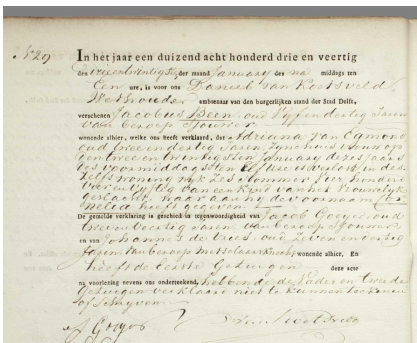 N° 29
In het jaar een duizend acht honderd drie en veertig
den vierentwintigste der maand January des na middags ten
Een ure, is voor ons Daniel van Koetsveld
Wethouder ambtenaar van den burgerlijken stand der Stad Delft,
verschenen Jacobus Been, oud Vijf en dertig Jaren
van beroep
wonende alhier, welke ons heeft verklaard, dat Adriana van Egmond
oud Drie en dertig Jaren Zijne huisvrouw op
den twee en twintigsten January dezes jaars
des voormiddags ten elf ure is verlost, in des
zelfs woning wijk Zes nommer vier honderd
vier en vijftig van een Kind van het Vrouwelijk
geslacht, waaraan hij de voornaam Cor
nelia heeft gegeven
De gemelde verklaring is geschied in tegenwoordigheid van Jacob Goeijer, oud
twee en veertig Jaren, van beroep Sjouwer
en van Johannes de Vries, oud Zeven en dertig
Jaren, van beroep Metselaarsknecht, wonende alhier, En
heeft de eerste Getuigen deze acte
na voorlezing nevens ons onderteekend, hebbende de Vader en tweede
Getuigen verklaard niet te kunnen teekenen
of Schrijven
J Goeijer